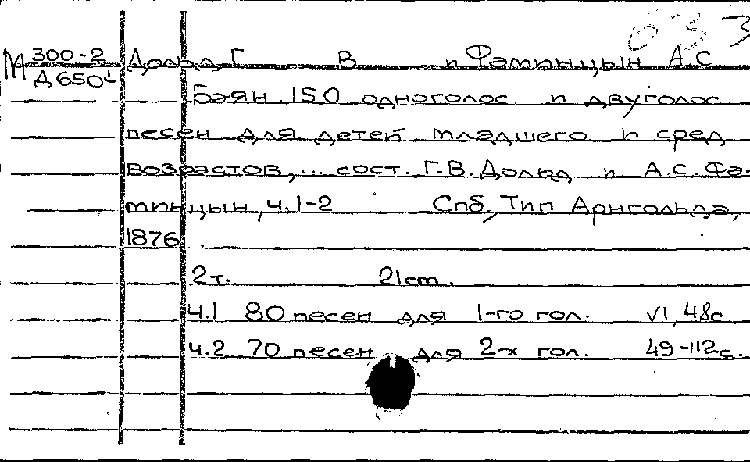 М 300-2 / Д 650
Дольд Г. В. и Фаминцын А.С
Баян. 150 одноголос и двуголос
песен для детей младшего и сред
возрастов,... сост. Г.В. Дольд и А.С. Фа-
минцын, ч.1-2 Спб, Тип Арнгольда,
1876
2т. 21cm.
ч.1 80 песен для 1-го гол. VI, 48с
ч.2 70 песен для 2-х гол. 49-112с.